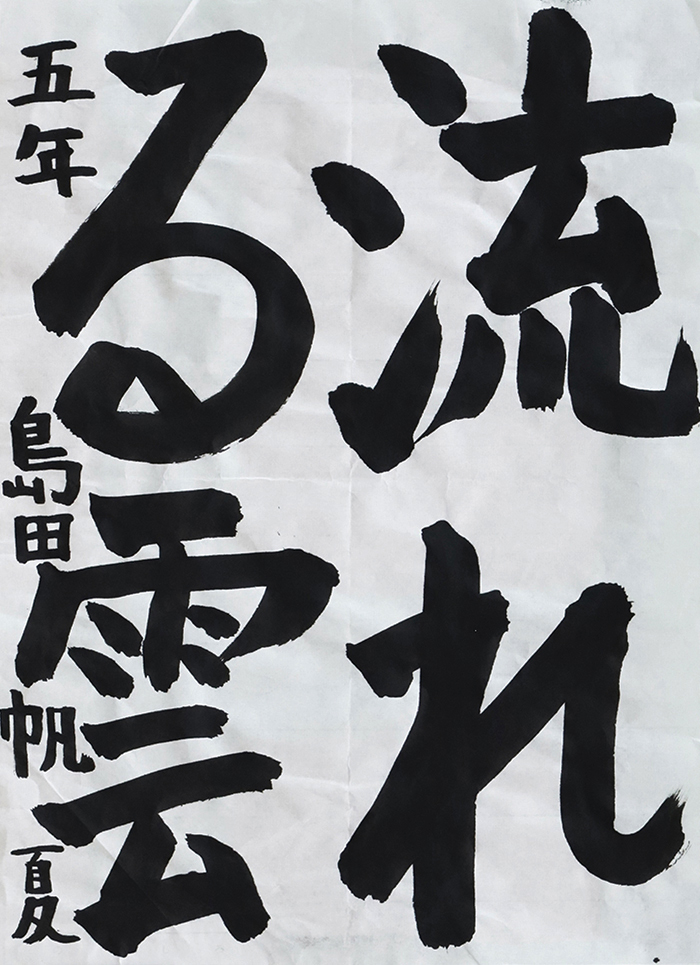 流れ
る雲
五年 島田帆夏